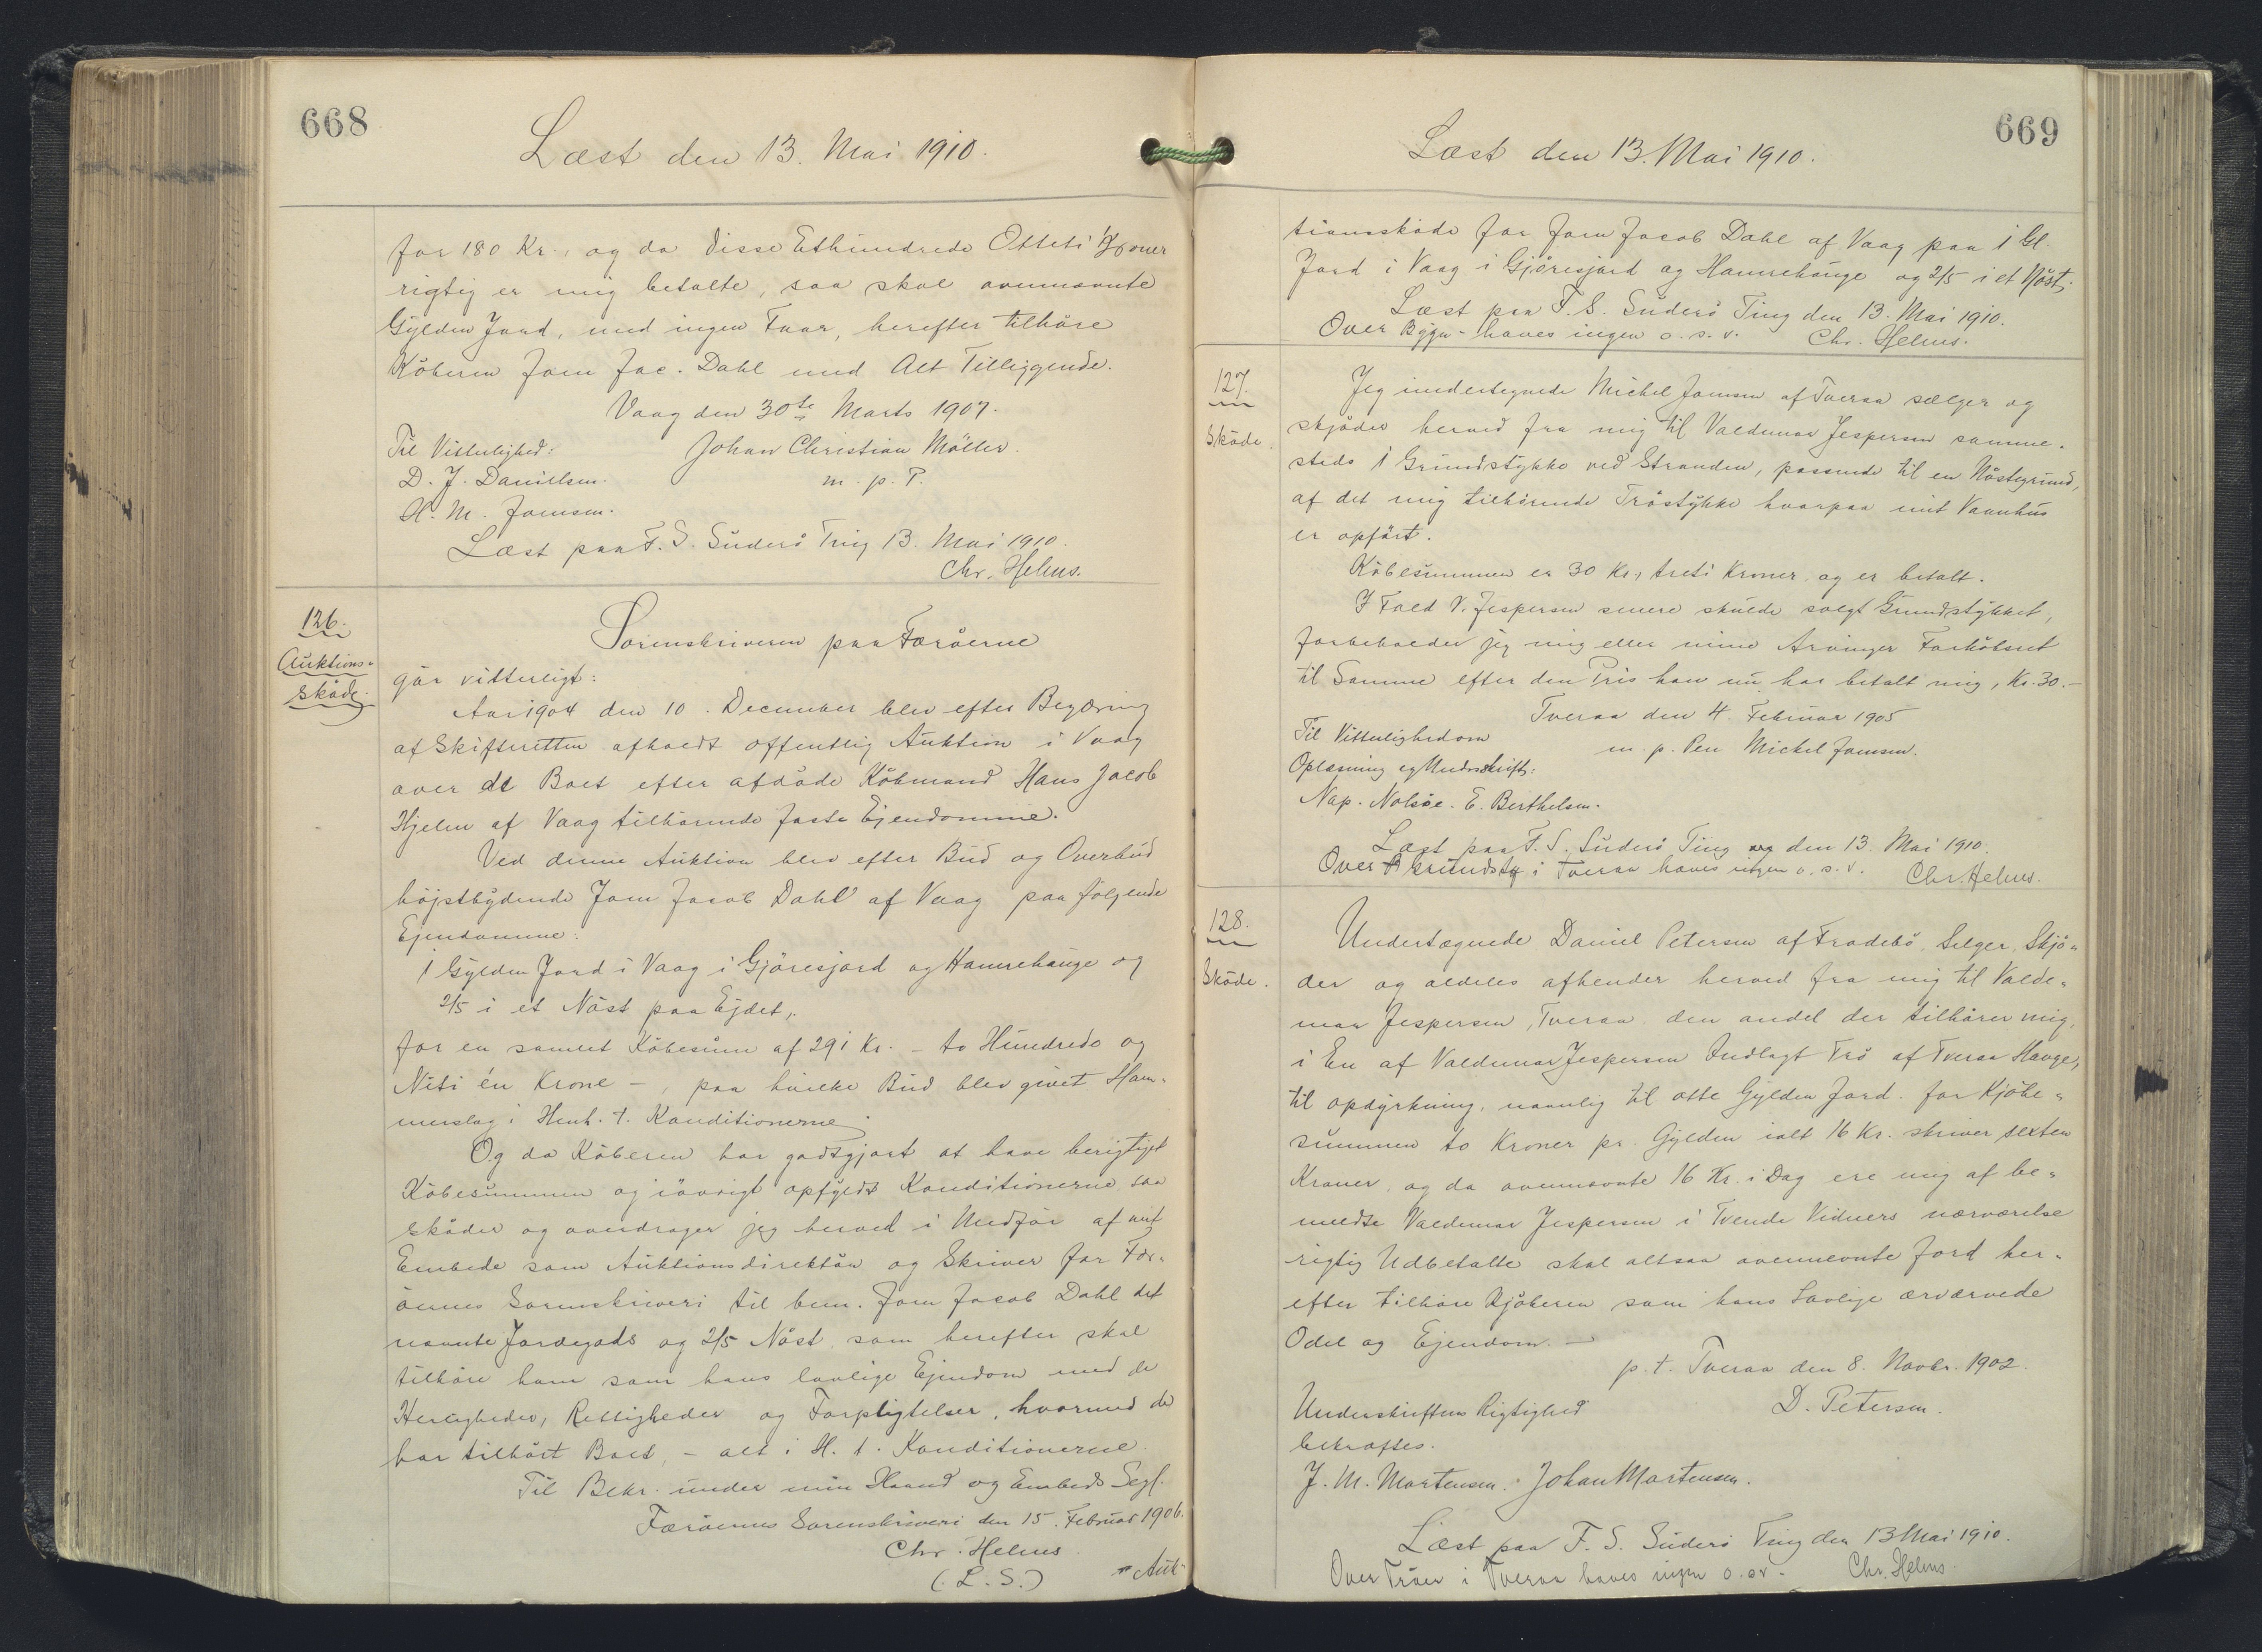 668
Læst den 13. Mai 1910.
for 180 Kr., og da disse Ethundrede Otteti Kroner
rigtig er mig betalte, saa skal ovennævnte
Gylden Jord, med ingen Faar, herefter tilhøre
Køberen Joen Jac. Dahl med Alt Tilliggende.
Vaag den 30te Marts 1907.
Til Vitterlighed: Johan Christian Møller.
D. J. Danielsen. m. p. P.
H. M. Joensen.
Læst paa F. S. Suderø Ting 13. Mai 1910.
Chr. Helms.
126.
Auktions-
skøde.
Sorenskriveren paa Færøerne
gør vitterligt:
Aar 1904 den 10. December blev efter Begæring
af Skifteretten afholdt offentlig Auktion i Vaag
over de Boet efter afdøde Købmand Hans Jacob
Hjelm af Vaag tilhørende faste Ejendomme.
Ved denne Auktion blev efter Bud og Overbud
højstbydende Joen Jacob Dahl af Vaag paa følgende
Ejendomme:
1 Gylden Jord i Vaag i Gjøresjord og Hamrehauge og
2/5 i et Nøst paa Ejdet,
for en samlet Købesum af 291 Kr. – to Hundrede og
Niti én Krone –, paa hvilke Bud blev givet Ham-
merslag i Henh. t. Konditionerne.
Og da Køberen har godtgjort at have berigtiget
Købesummen og iøvrigt opfyldt Konditionerne saa
skøder og overdrager jeg herved i Medfør af mit
Embede som Auktionsdirektør og Skriver for Fær-
øernes Sorenskriveri til bem. Joen Jacob Dahl det
nævnte Jordegods og 2/5 Nøst, som herefter skal
tilhøre ham som hans lovlige Ejendom med de
Herligheder, Rettigheder og Forpligtelser, hvormed de
har tilhørt Boet, – alt i H. t. Konditionerne.
Til Bekr. under min Haand og Embeds Segl.
Færøernes Sorenskriveri den 15. Februar 1906.
Chr. Helms
(L. S.) Auk-
669
Læst den 13. Mai 1910.
tionsskøde for Joen Jacob Dahl af Vaag paa 1 Gl.
Jord i Vaag i Gjøresjord og Hamrehauge og 2/5 i et Nøst.
Læst paa F. S. Suderø Ting den 13. Mai 1910.
Over Bygn- haves ingen o. s. v. Chr. Helms.
127.
Skøde.
Jeg undertegnede Michel Joensen af Tveraa sælger og
skjøder herved fra mig til Valdemar Jespersen samme-
steds 1 Grundstykke ved Stranden, passende til en Nøstegrund,
af det mig tilhørende Trøstykke hvorpaa mit Vaanhus
er opført.
Købesummen er 30 Kr., treti Kroner og er betalt.
I Fald V. Jespersen senere skulde solgt Grundstykket,
forbeholder jeg mig eller mine Arvinger Forkøbsret
til Samme efter den Pris han nu har betalt mig, Kr. 30.–
Tveraa den 4. Februar 1905
Til Vitterlighed om m. p. Pen Michel Joensen.
Oplæsning og Underskrift:
Nap. Nolsøe. E. Berthelsen.
Læst paa F. S. Suderø Ting den 13. Mai 1910.
Over Grundsty i Tveraa haves ingen o. s. v. Chr. Helms.
128.
Skøde.
Undertægnede Daniel Petersen af Frodebø, Selger, Skjø-
der og aldeles afhender herved fra mig til Valde-
mar Jespersen, Tveraa den andel der tilhører mig,
i En af Valdemar Jespersen Indlagt Trø af Tveraa Hauge,
til opdyrkning, navnlig til otte Gylden Jord. for Kjøbe-
summen to Kroner pr. Gylden ialt 16 Kr. skriver sexten
Kroner, og da ovennævnte 16 Kr. i Dag ere mig af be-
meldte Valdemar Jespersen i Tvende Vidners nærværelse
rigtig Udbetalte skal altsaa ovennevnte Jord her-
efter tilhøre Kjøberen som hans Lovlige ærværvede
Odel og Ejendom. –
p. t. Tveraa den 8. Novbr. 1902.
Underskriftens Rigtighed D. Petersen.
bekræftes.
J. M. Mortensen. Johan Mortensen.
Læst paa F. S. Suderø Ting den 13 Mai 1910.
Over Trøer i Tveraa haves ingen o. sv. Chr. Helms.